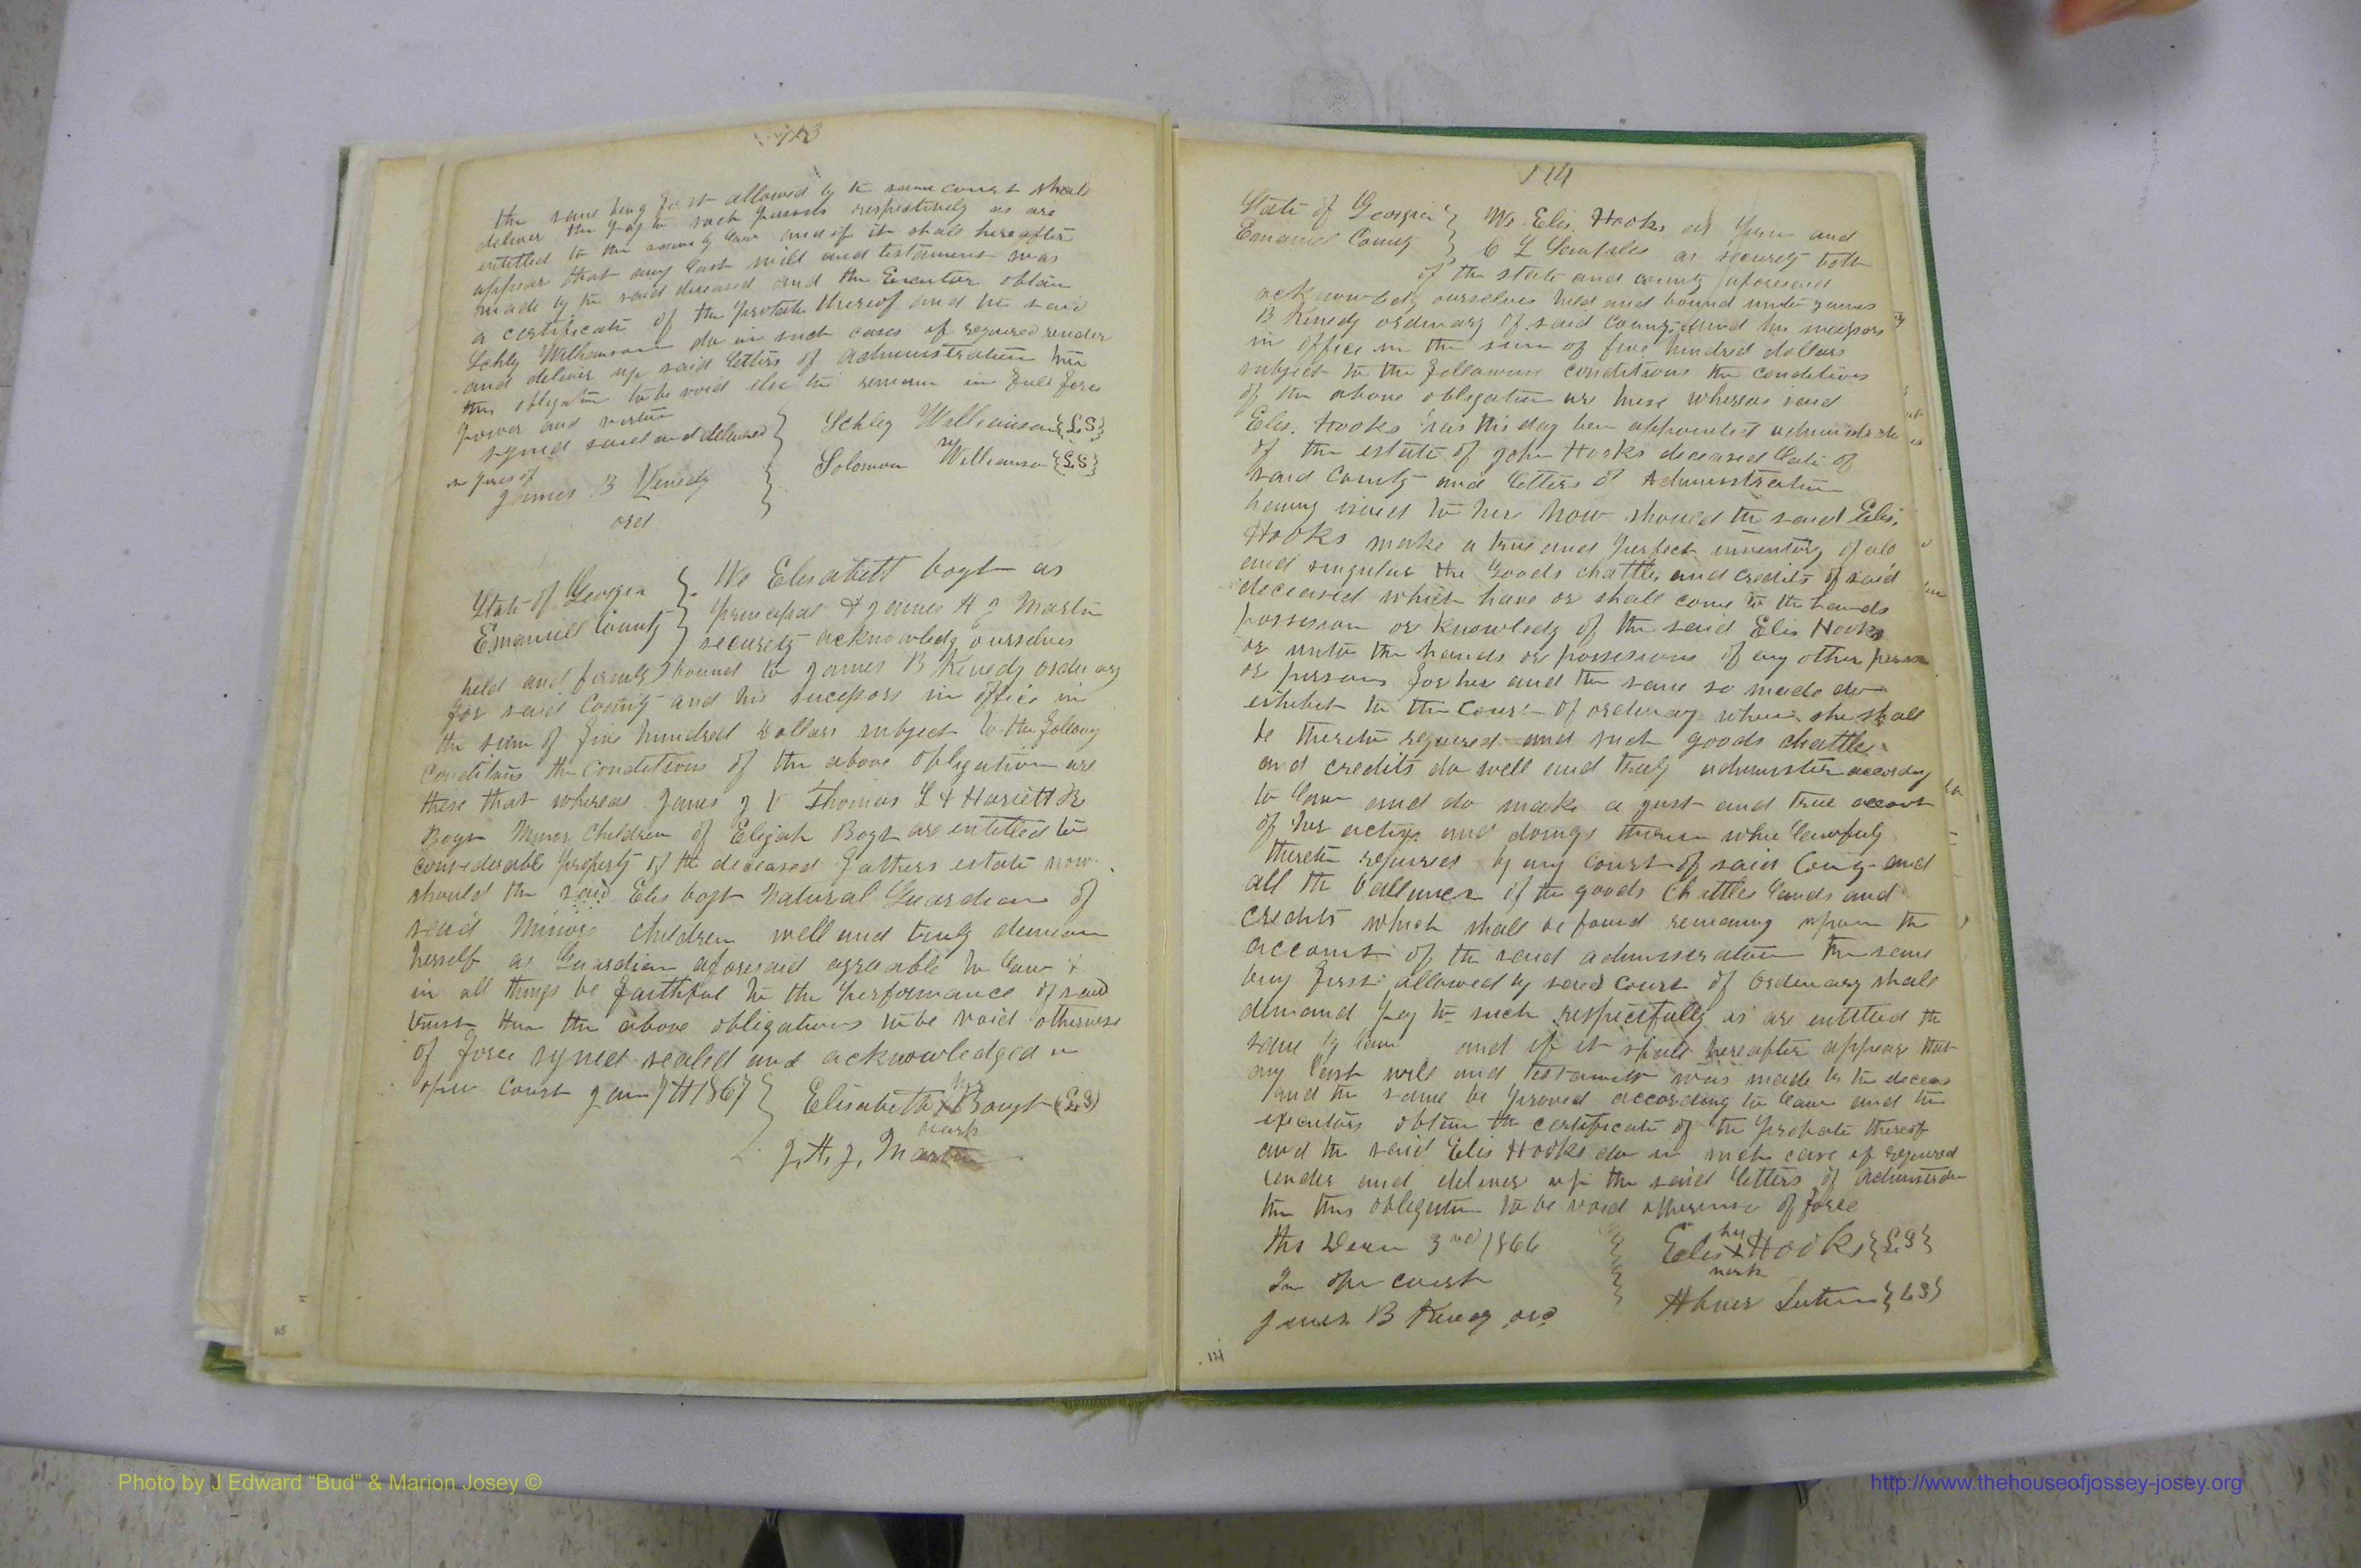 113
the same being first allowed by the same court shall
deliver the pay to such persons respectively as are
entitled to the same by law and if it shall hereafter
appear that any last will and testament was
made by the said deceased and the Executor obtain
a certificate of the probate thereof and the said
Schley Williamson do in such cases if required render
and deliver up said letters of administration then
this obligation to be void else to remain in full force
power and virtue
signed sealed and delivered
in pres of
James B Kenedy
ord
Schley Williamson {L.S}
Solomon Williamson {L.S}
State of Georgia } We Elisabett bogt as
Emanuell County } principal & James H J Martin
security acknowledg ourselves
held and firmly bound to James B Kenedy ordinary
for said County and his sucessors in office in
the sum of five hundred Dollars subject to the following
Conditions the Conditions of the above obligation are
these that whereas James J V Thomas L & Hariett R
Bogt Minor Children of Elijah Bogt are entitled to
considerable property of the deceased fathers estate now
should the said Elis bogt Natural Guardian of
said Minors children well and truly demean
herself as Guardian aforesaid agreable to law &
in all things be faithful to the performance of said
trust then the above obligations to be void otherwise
of force syned sealed and acknowledged in
open Court Jan 7th 1867
Elisabeth her x mark Bougt (L.S)
J. H. J. Martin
114
State of Georgia } We Elis. Hooks as prin and
Emanuel County } C L as security both
of the state and county aforesaid
acknowledg ourselves held and bound unto James
B Kenedy ordinary of said County and his sucessors
in office in the sum of five hundred dollars
subject to the following conditions the conditions
of the above obligation are these whereas said
Elis. Hooks has this day ben appointed
of the estate of John Hooks deceased late of
said County and letters of Administration
having issued to her now should the said Elis.
Hooks make a true and perfect inventory of all
and singular the Goods chattles and credits of said
deceased which have or shall come to the hands
possession or knowledg of the said Elis Hooks
or unto the hands or possesions of any other person
or persons for her and the same so made do
exhibit to the Court of ordinary when she shall
be thereto required and such goods chattles
and credits do well and truly administer according
to law and do make a just and true account
of her and doings therein when lawfuly
thereto required by any court of said County and
all the the goods Chattles lands and
credits which shall be found remaining upon the
account of the said administration the same
being first allowed by said Court of Ordinary shall
demand pay to such respectfully as are entitled the
same by law and if it shall hereafter appear that
any last will and testament was made by the deceas
and the same be proved according to law and the
executors obtain the certificate of the probate thereof
and the said Elis Hooks do in such case if required
render and deliver up the said letters of
then this obligation to be void otherwise of force
this Decm 3rd 1866
In open court
James B Kenedy ord
Elis her x mark Hooks {L.S}
Abner {LS}
Photo by J Edward “Bud” & Marion Josey ©
http://www.thehouseofjossey-josey.org